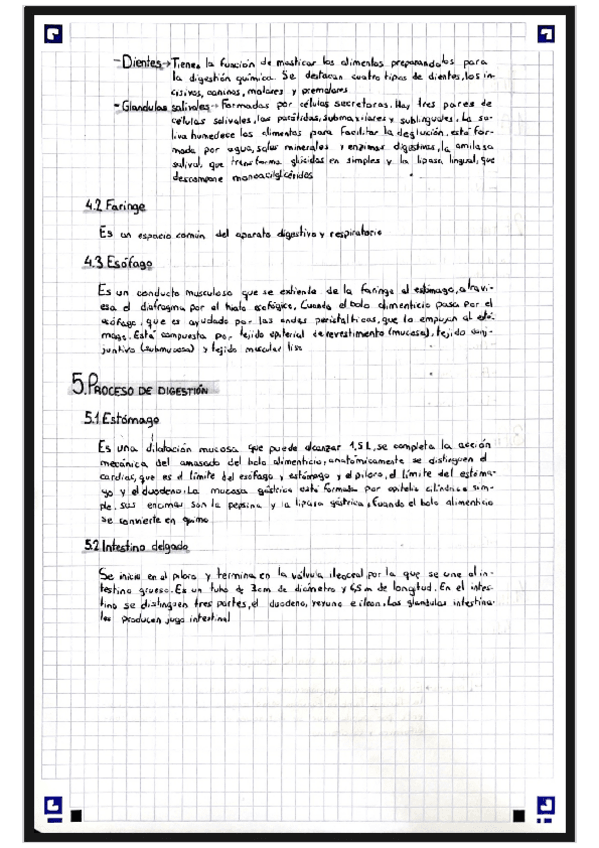 - Dientes → Tienen la función de masticar los alimentos preparandolos para
la digestión química. Se destacan cuatro tipos de dientes, los in-
cisivos, caninos, molares y premolares
- Glandulas salivales → Formadas por células secretoras. Hay tres pares de
células salivales, las parótidas, submaxilares y sublinguales. La sa-
liva humedece los alimentos para facilitar la deglución, está for-
mada por agua, sales minerales y enzimas digestivas, la amilasa
salival, que transforma glúcidos en simples y la lipasa lingual, que
descompone monoacilglicéridos
4.2 Faringe
Es un espacio común del aparato digestivo y respiratorio
4.3 Esófago
Es un conducto musculoso que se extiende de la faringe al estómago, atravi-
esa el diafragma por el hiato esofágico. Cuando el bolo alimenticio pasa por el
esófago, que es ayudado por las ondas peristalticas, que lo empujan al estó-
mago. Está compuesta por tejido epiterial de revestimento (mucosa), tejido conj-
juntivo (submucosa) y tejido muscular liso
5. PROCESO DE DIGESTIÓN
5.1 Estómago
Es una dilatación mucosa que puede alcanzar 1,5 L, se completa la acción
mecánica del amasado del bolo alimenticio, anatómicamente se distinguen el
cardias, que es el límite del esófago y estómago y el píloro, el límite del estóma-
go y el duodeno. La mucosa gástrica está formada por epitelio cilíndrico sim-
ple, sus encimas son la pepsina y la lipasa gástrica, cuando el bolo alimenticio
se convierte en quimo
5.2 Intestino delgado
Se inicia en el píloro y termina en la válvula ileocecal por la que se une al in-
testino grueso. Es un tubo de 3cm de diámetro y 6,5 m de longitud. En el intes-
tino se distinguen tres partes, el duodeno, yeyuno e íleon. Las glandulas intestina-
les producen jugo intestinal